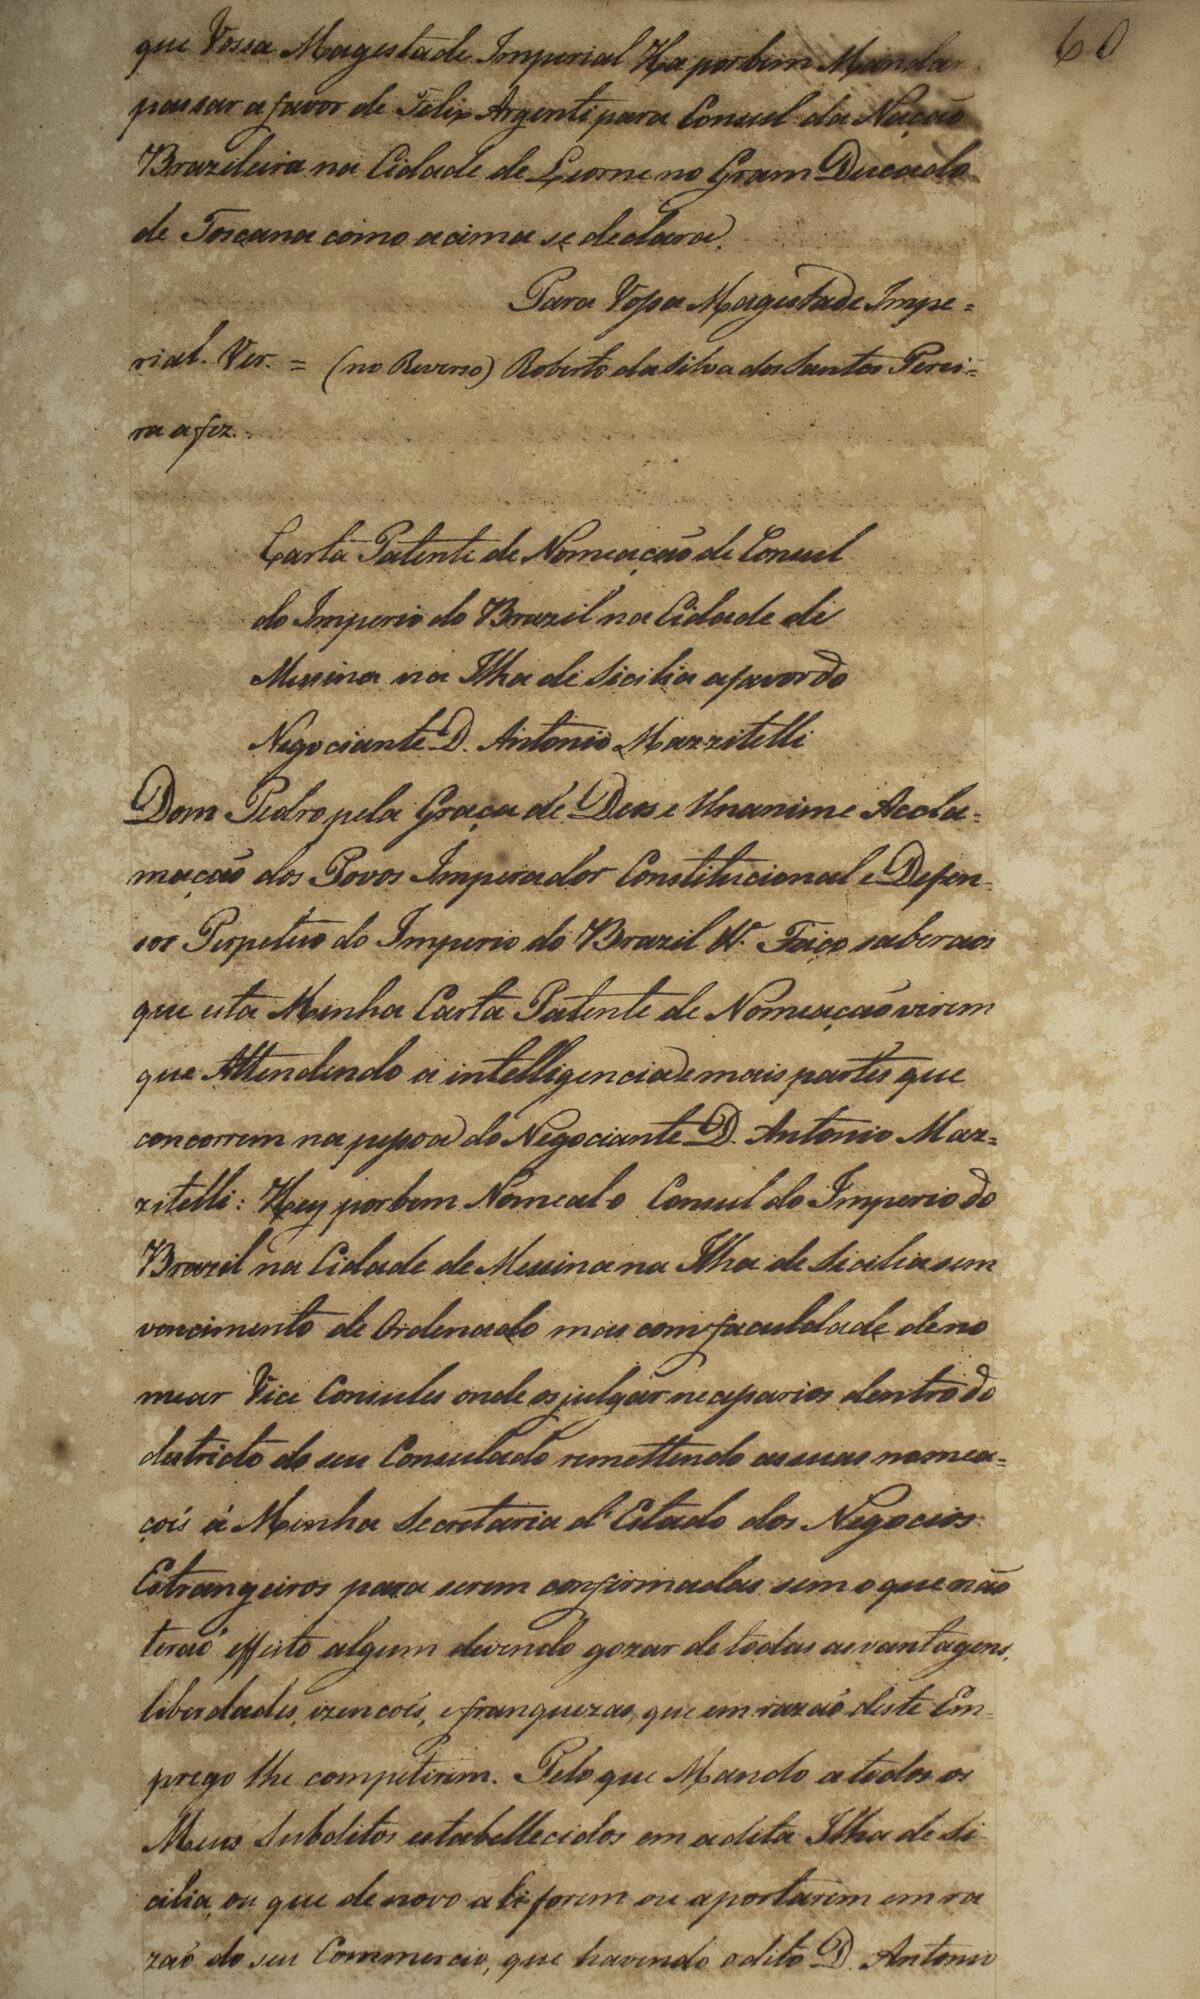 60
que Vossa Magestade Imperial Ha por bem Mandar
passar a favor de Felix Argenti para Consul da Nação
Brazileira na Cidade de Liorne no Gram Ducado
de Toscana como acima se declara.
Para Vossa Magestade Impe=
rial. Ver. = (no Reverso) Roberto da Silva dos Santos Perei=
ra a fez.
Carta Patente de Nomeação de Consul
do Imperio do Brazil na Cidade de
Messina na Ilha de Sicilia a favor do
Negociante D. Antonio Mazzitelli
Dom Pedro pela Graça de Deos e Unanime Accla=
mação dos Povos Imperador Constitucional e Defen-
sor Perpetuo do Imperio do Brazil &ª. Faço saber aos
que esta Minha Carta Patente de Nomeação virem
que Attendendo á intelligencia e mais partes que
concorrem na pessoa do Negociante D. Antonio Maz=
zitelli: Hey por bem Nomealo Consul do Imperio do
Brazil na Cidade de Messina na Ilha de Sicilia sem
vencimento de Ordenado mas com faculdade de no
mear Vice Consules onde os julgar necessarios dentro do
districto do seu Consulado remettendo as suas nomea=
çoẽs á Minha Secretaria d'Estado dos Negocios
Estrangeiros para serem confirmadas sem o que não
teraõ effeito algum devendo gozar de todas as vantagens,
liberdades, izençoẽs, e franquezas, que em razaõ deste Em-
prego lhe competirem. Pelo que Mando a todos os
Meus Subditos estabellecidos em a dita Ilha de Si
cilia, ou que de novo a li forem ou aportarem em ra
zaõ do seu Commercio, que havendo o dito D. Antonio